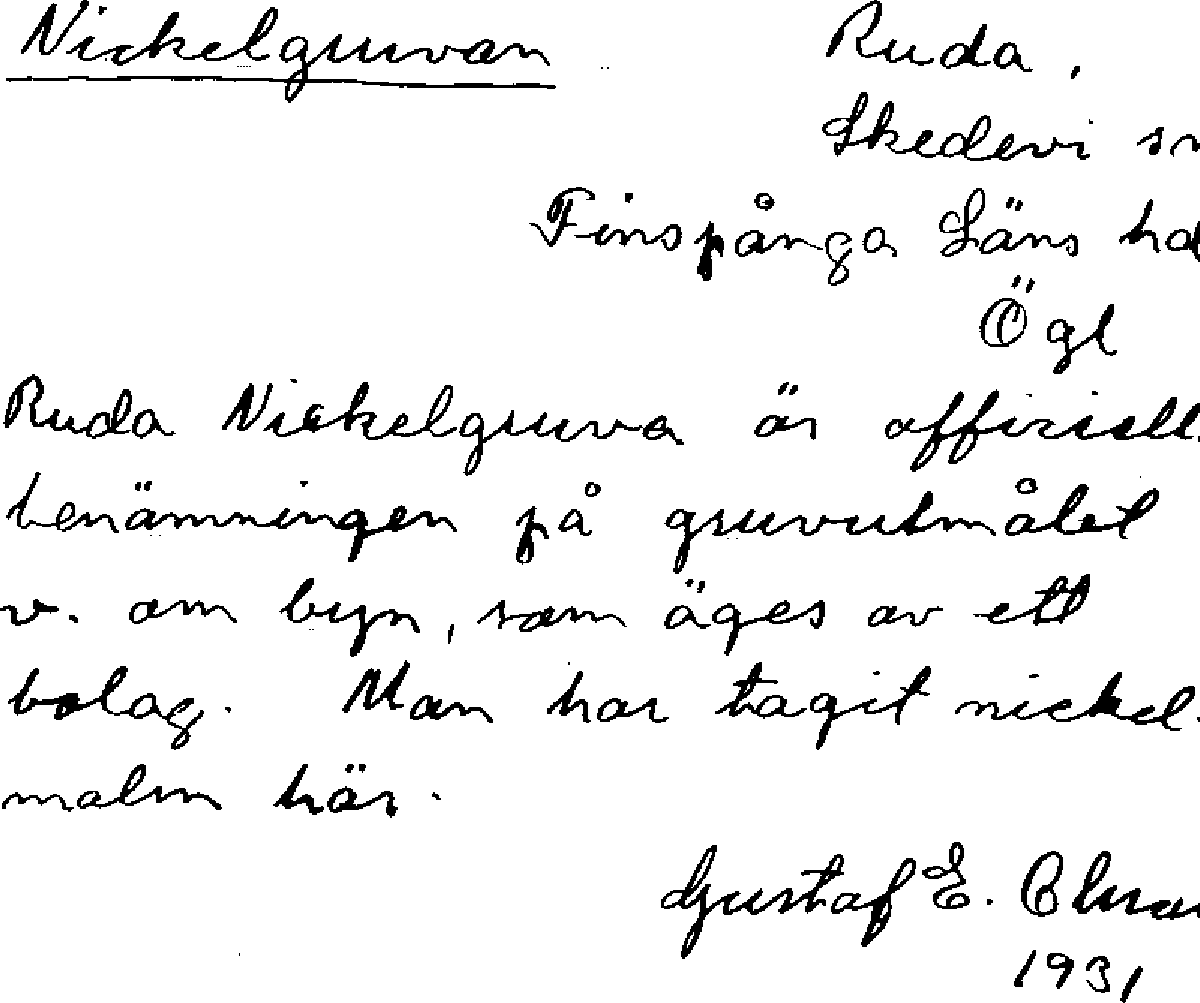 Nickelgruvan Ruda,
Skedevi sn
Finspånga Läns hd
Ögl
Ruda Nickelgruva är officiell
benämningen på gruvutmålet
v. om byn, som äges av ett
bolag. Man har tagit nickel-
malm här.
Gustaf E.
1931